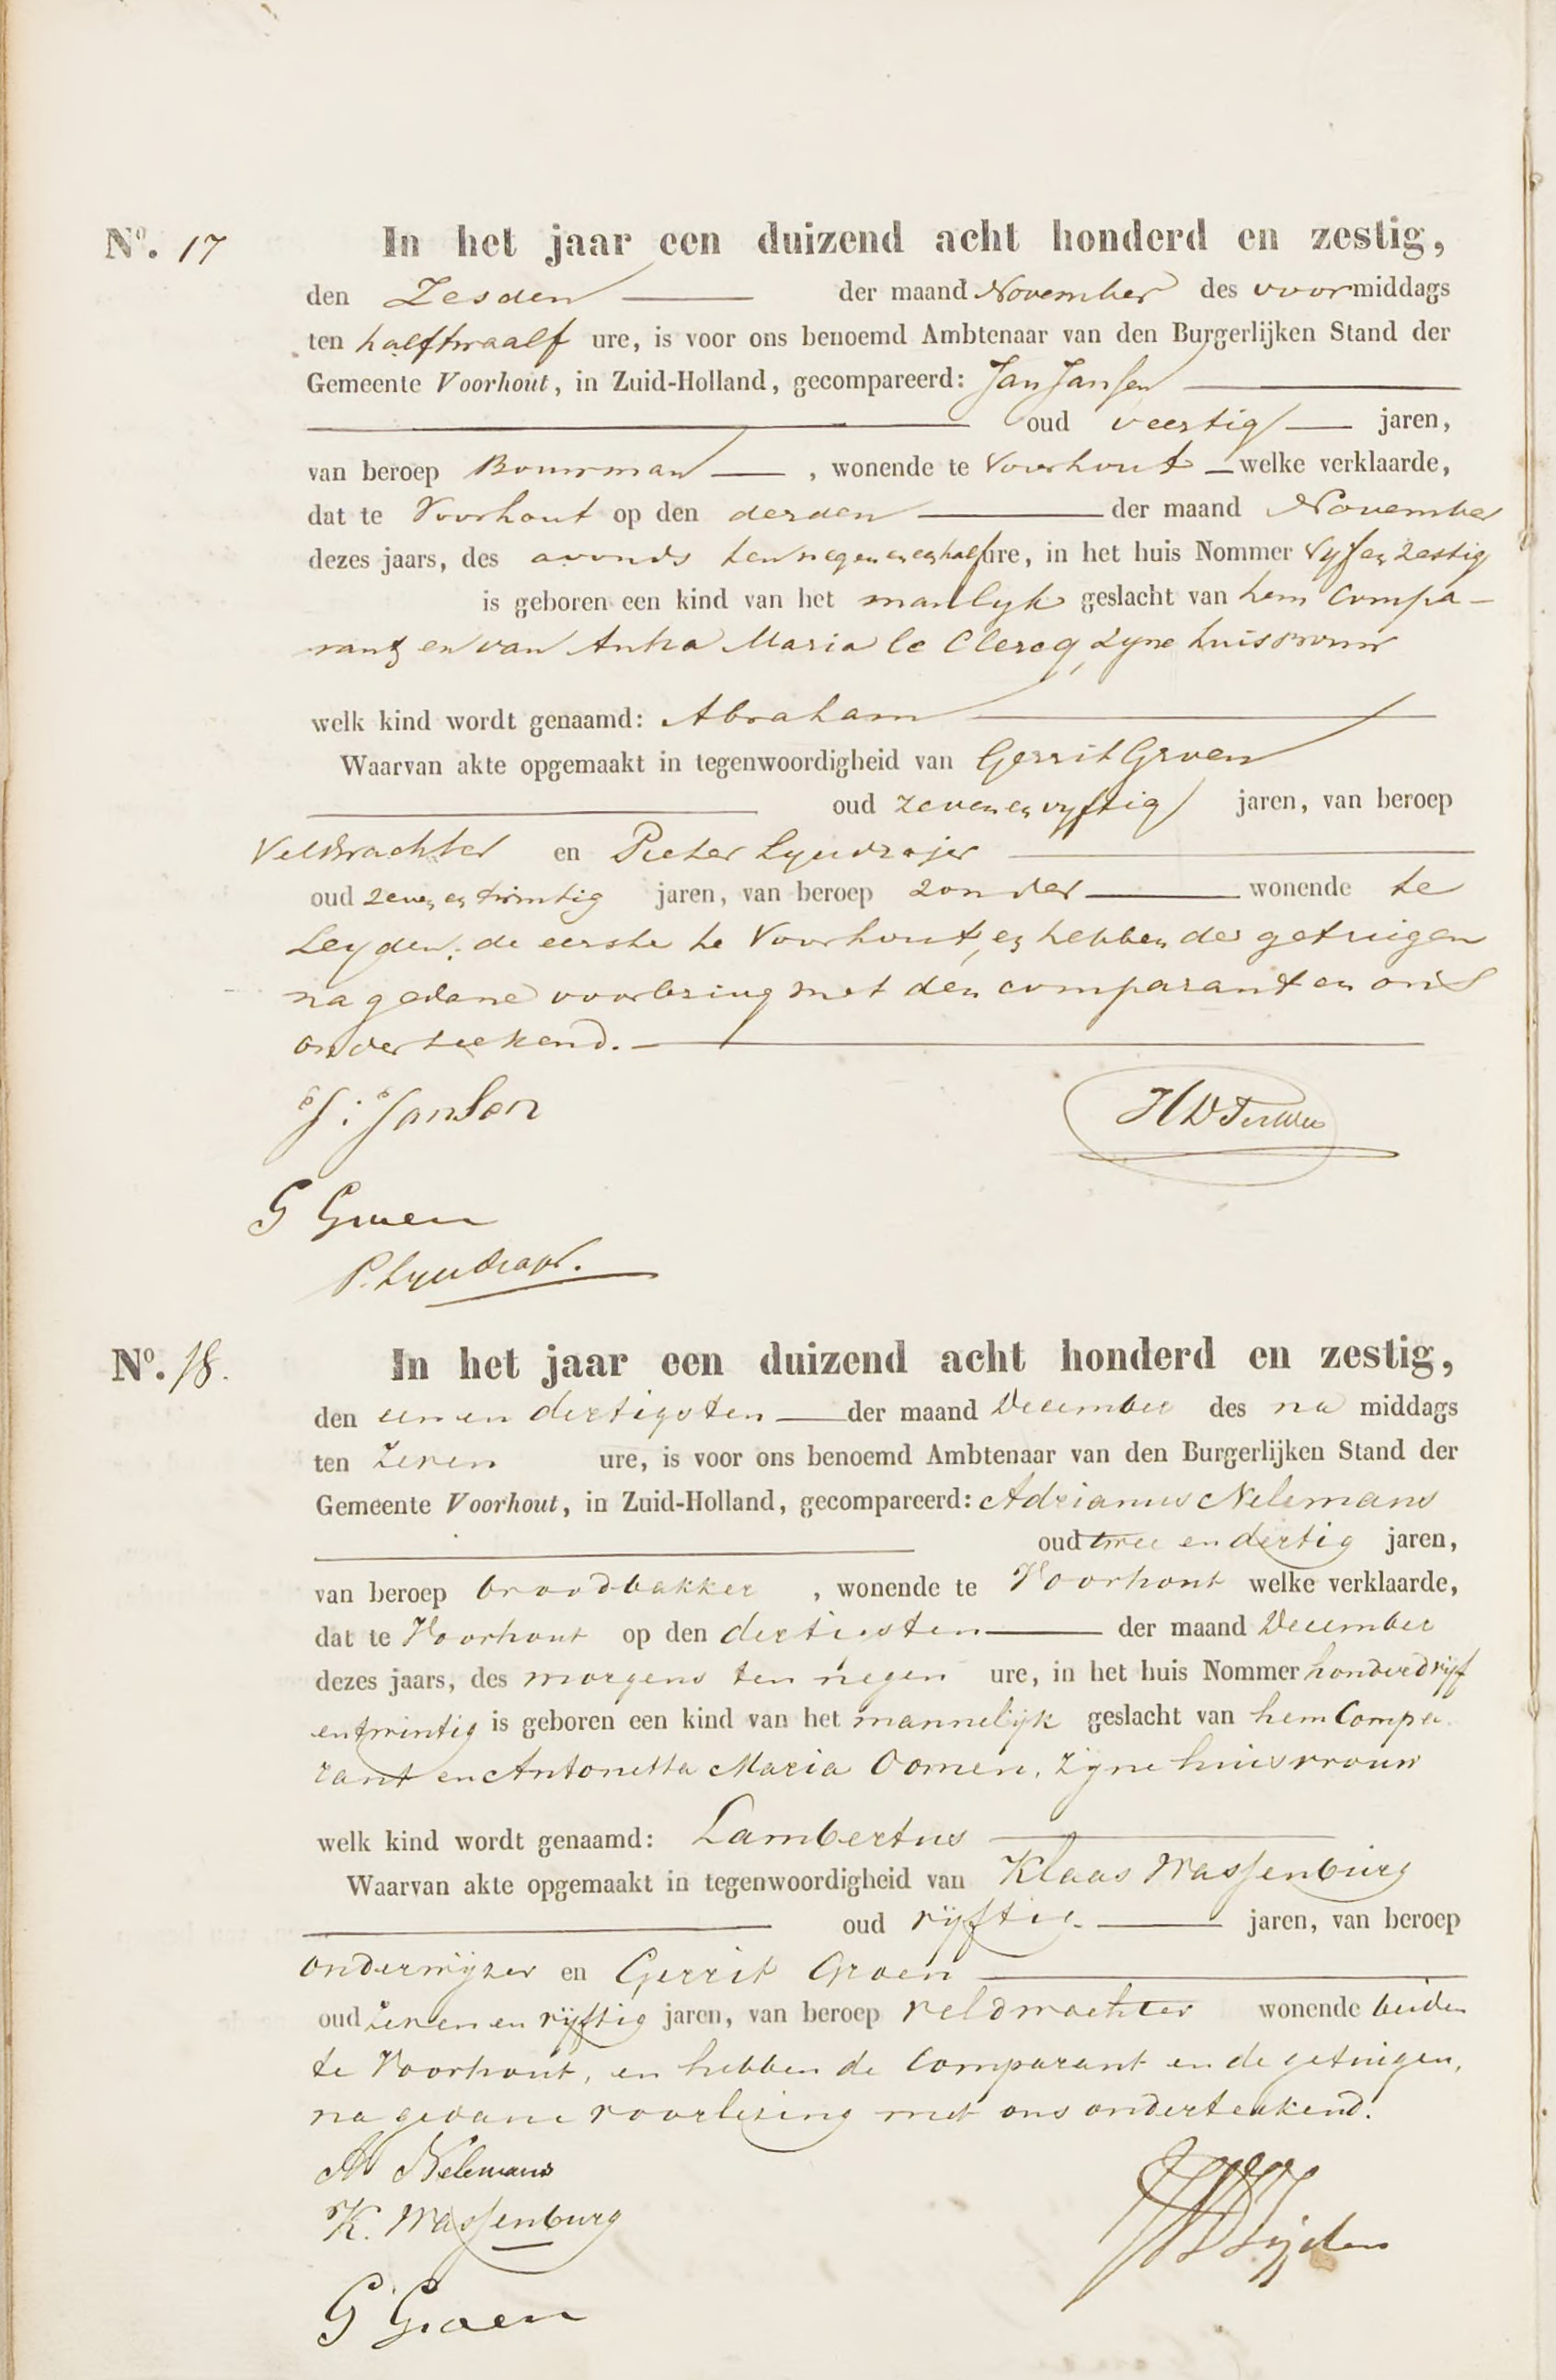 Nº. 17
In het jaar een duizend acht honderd en zestig,
den Zesden der maand November des voormiddags
ten halftwaalf ure, is voor ons benoemd Ambtenaar van den Burgerlijken Stand der
Gemeente Voorhout, in Zuid-Holland, gecompareerd: Jan Jansen
oud veertig jaren,
van beroep Bouwman, wonende te Voorhout welke verklaarde,
dat te Voorhout op den derden der maand November
dezes jaars, des avonds ten negen en een half ure, in het huis Nommer Vyf en zestig
is geboren een kind van het manlyk geslacht van hem Compa-
rant en van Anna Maria le Clercq, zyne huisvrouw
welk kind wordt genaamd: Abraham
Waarvan akte opgemaakt in tegenwoordigheid van Gerrit Groen
oud zeven en vyftig jaren, van beroep
Veldwachter en Pieter
oud zeven en twintig jaren, van beroep zonder wonende te
Leyden; de eerste te Voorhout, en hebben de getuigen
na gedane voorlezing met den comparant en ons
onderteekend.
J: Jansen
G Groen
Nº. 18.
In het jaar een duizend acht honderd en zestig,
den een en dertigsten der maand December des na middags
ten Zeven ure, is voor ons benoemd Ambtenaar van den Burgerlijken Stand der
Gemeente Voorhout, in Zuid-Holland, gecompareerd: Adrianus Nelemans
oud twee en dertig jaren,
van beroep broodbakker, wonende te Voorhout welke verklaarde,
dat te Voorhout op den dertigsten der maand December
dezes jaars, des morgens ten negen ure, in het huis Nommer honderd vijf
en twintig is geboren een kind van het mannelijk geslacht van hem Compa
rant en Antonetta Maria Oomen, zijne huisvrouw
welk kind wordt genaamd: Lambertus
Waarvan akte opgemaakt in tegenwoordigheid van Klaas Wassenburg
oud vijftig jaren, van beroep
onderwijzer en Gerrit Groen
oud zeven en vijftig jaren, van beroep veldwachter wonende beiden
te Voorhout, en hebben de Comparant en de getuigen,
na gedane voorlezing met ons onderteekend.
A Nelemans
K. Wassenburg
G Groen